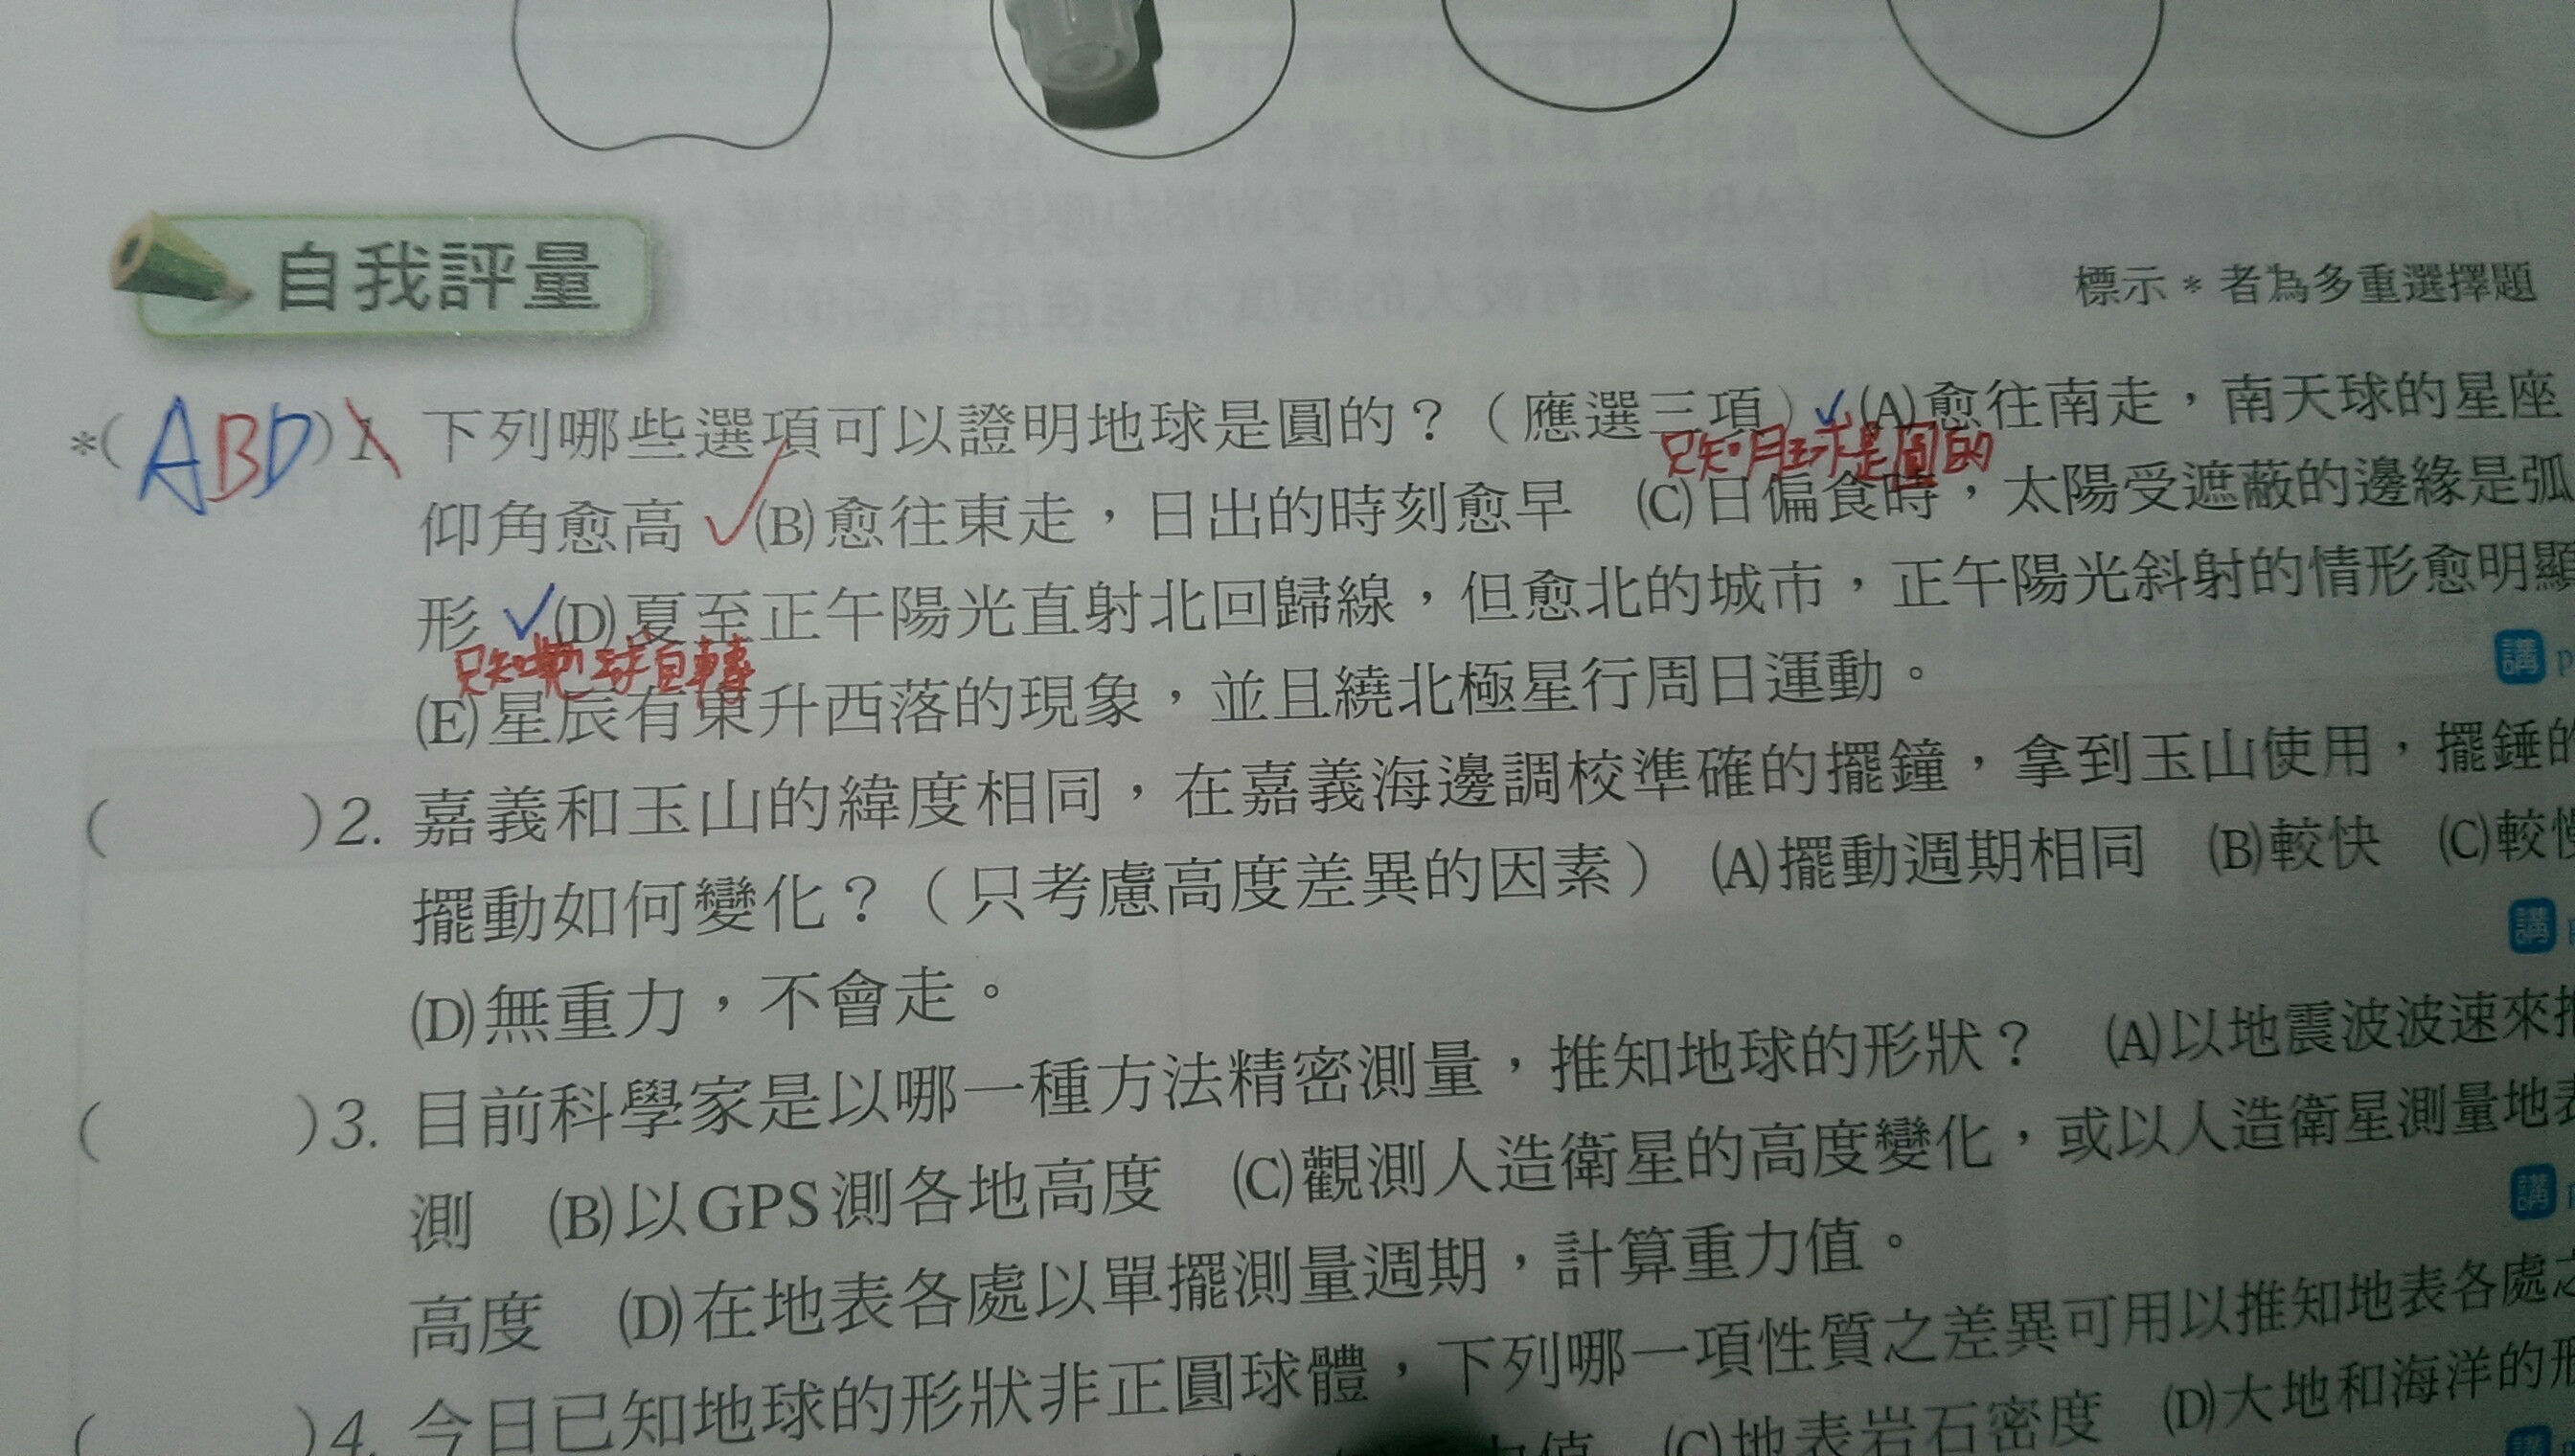 自我評量
標示*者為多重選擇題
*(ABD)1. 下列哪些選項可以證明地球是圓的？（應選三項）✓(A)愈往南走，南天球的星座
只知月球是圓的
仰角愈高 ✓(B)愈往東走，日出的時刻愈早 (C)日偏食時，太陽受遮蔽的邊緣是弧
形 ✓(D)夏至正午陽光直射北回歸線，但愈北的城市，正午陽光斜射的情形愈明顯
講
只知地球自轉
(E)星辰有東升西落的現象，並且繞北極星行周日運動。
( )2. 嘉義和玉山的緯度相同，在嘉義海邊調校準確的擺鐘，拿到玉山使用，擺錘的
擺動如何變化？（只考慮高度差異的因素） (A)擺動週期相同 (B)較快 (C)較慢
講
(D)無重力，不會走。
( )3. 目前科學家是以哪一種方法精密測量，推知地球的形狀？ (A)以地震波波速來推
測 (B)以GPS測各地高度 (C)觀測人造衛星的高度變化，或以人造衛星測量地表
講
高度 (D)在地表各處以單擺測量週期，計算重力值。
( )4. 今日已知地球的形狀非正圓球體，下列哪一項性質之差異可用以推知地表各處之
力值 (C)地表岩石密度 (D)大地和海洋的形